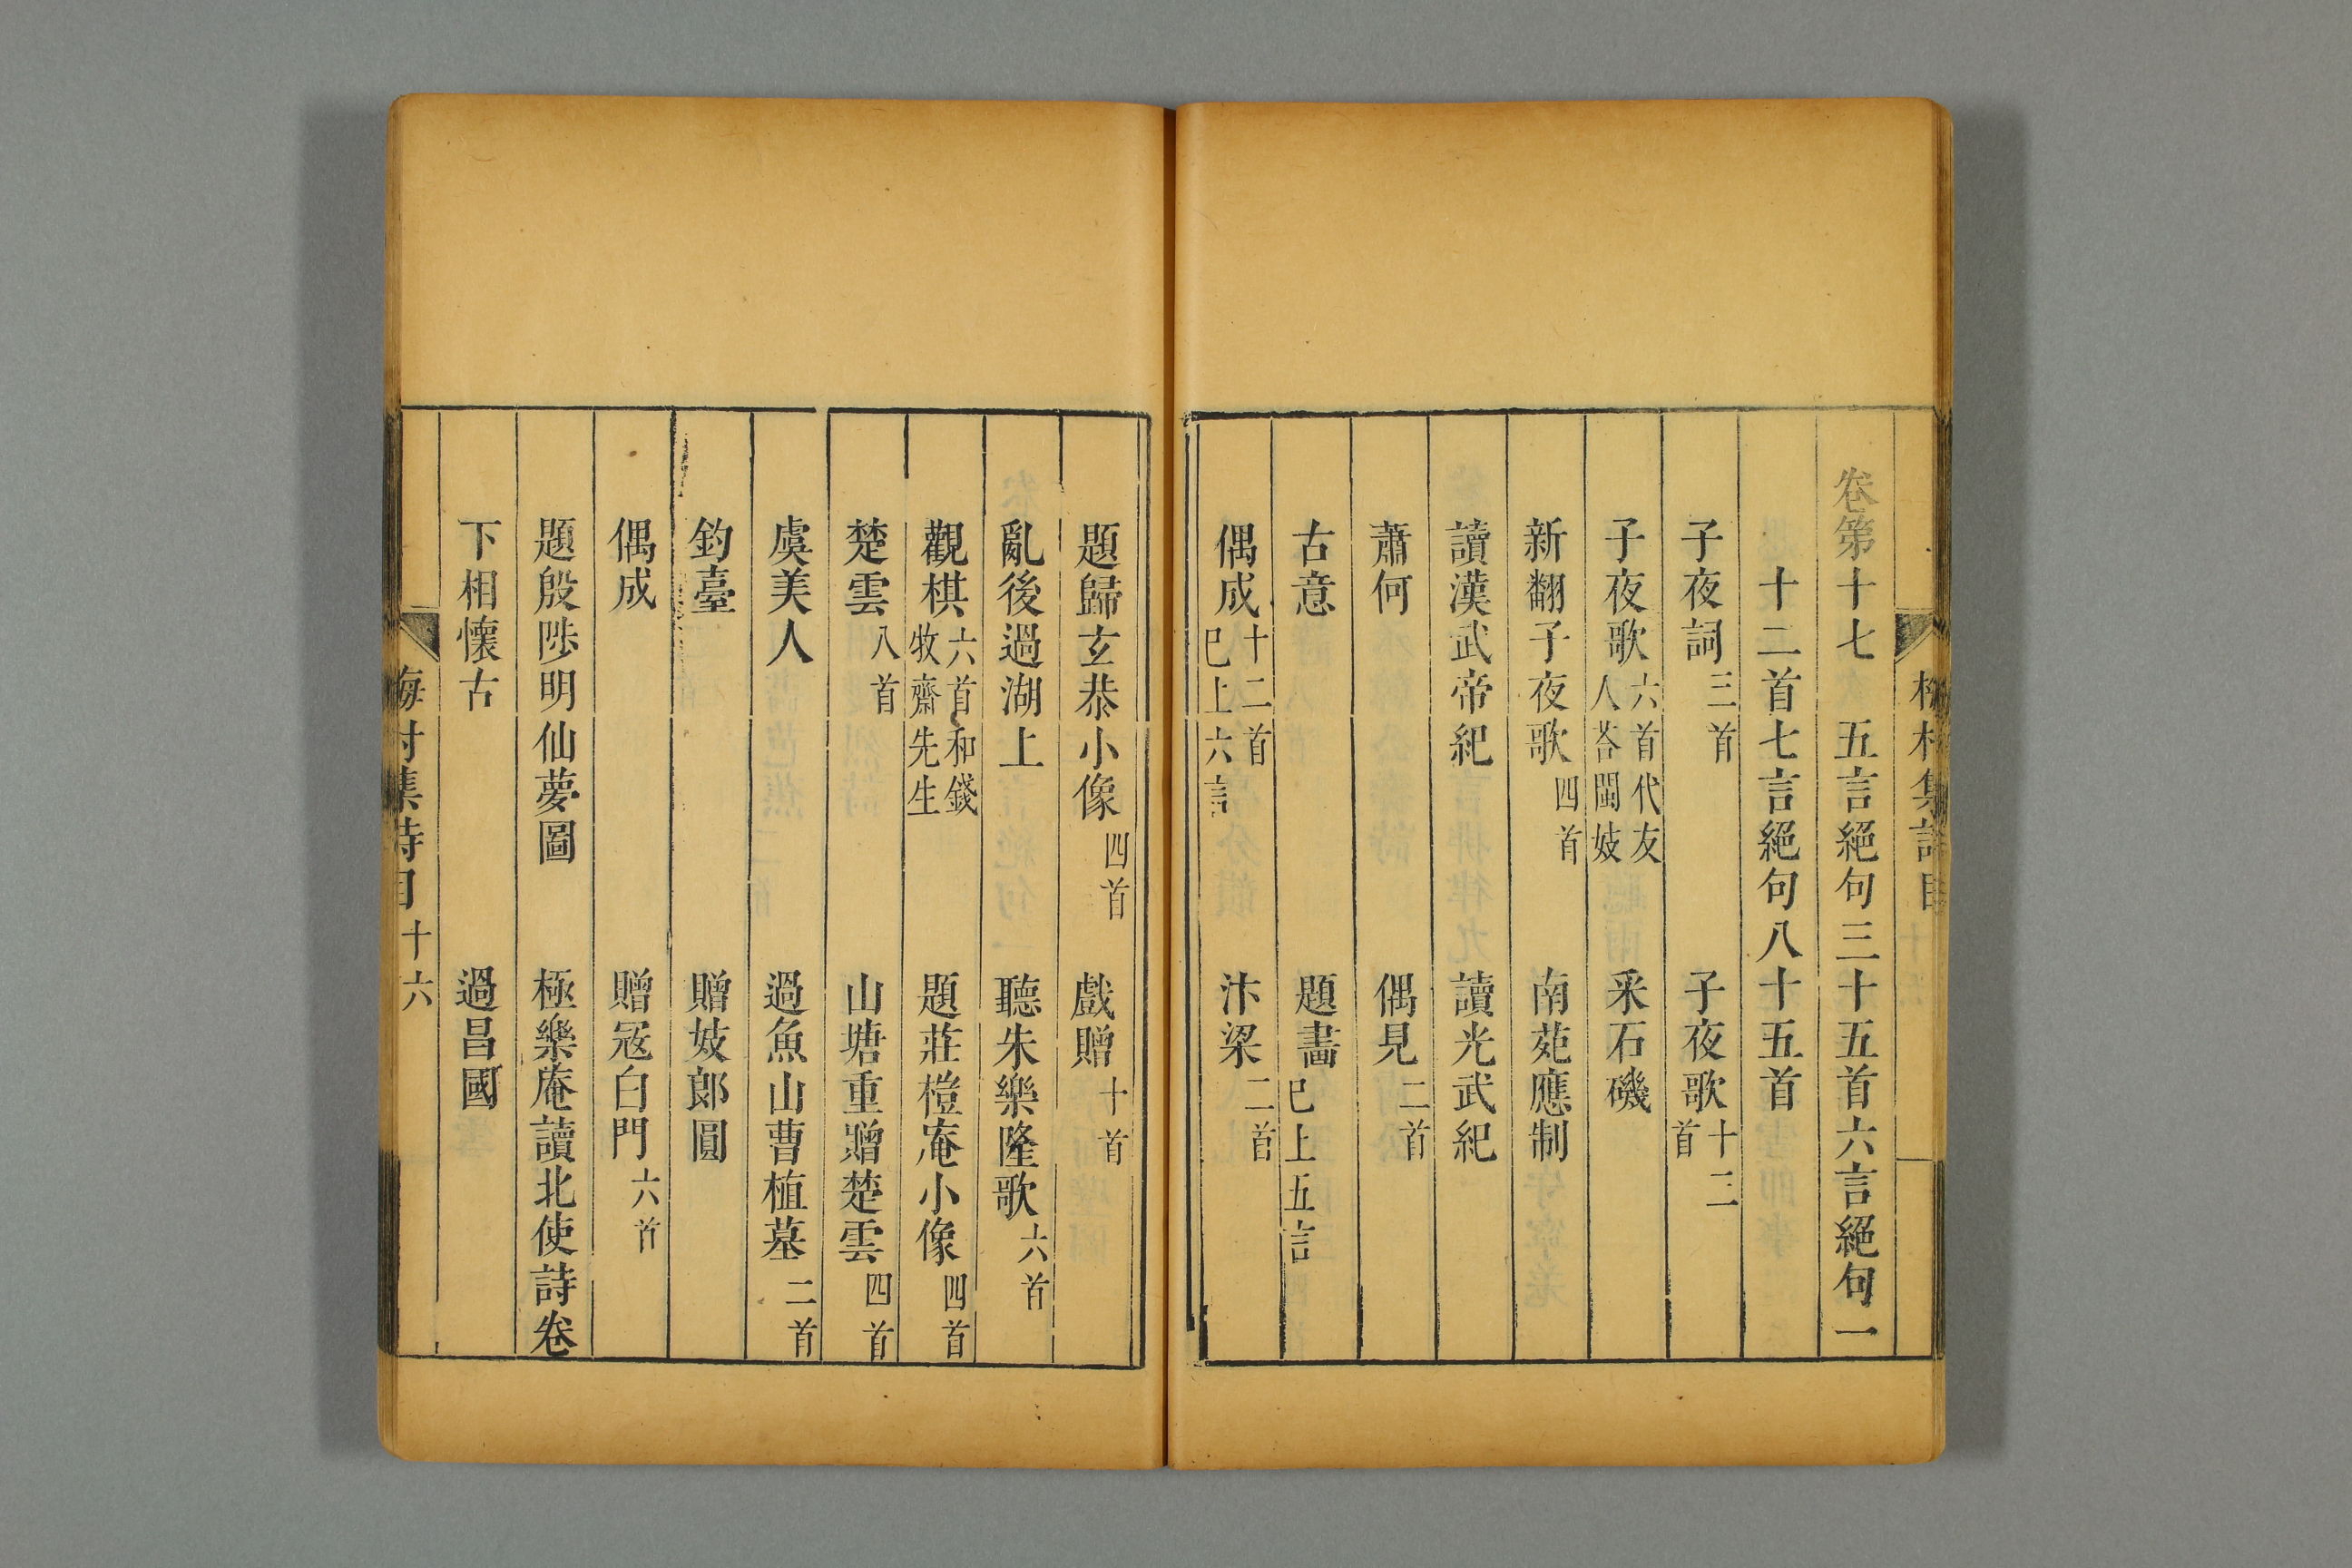 卷第十七　五言絕句三十五首六言絕句一
十二首七言絕句八十五首
子夜詞三首　子夜歌十二首
子夜歌六首代友人荅閩妓　采石磯
新翻子夜歌四首　南苑應制
讀漢武帝紀　讀光武紀
蕭何　偶見二首
古意　題畵已上五言
偶成十二首已上六言　汴梁二首
題歸玄恭小像四首　戲贈十首
亂後過湖上　聽朱樂隆歌六首
觀棋六首和錢牧齋先生　題莊榿庵小像四首
楚雲八首　山塘重贈楚雲四首
虞美人　過魚山曹植墓二首
釣臺　贈妓郎圓
偶成　贈寇白門六首
題殷陟明仙夢圖　極樂庵讀北使詩卷
下相懷古　過昌國
梅村集詩目　十六